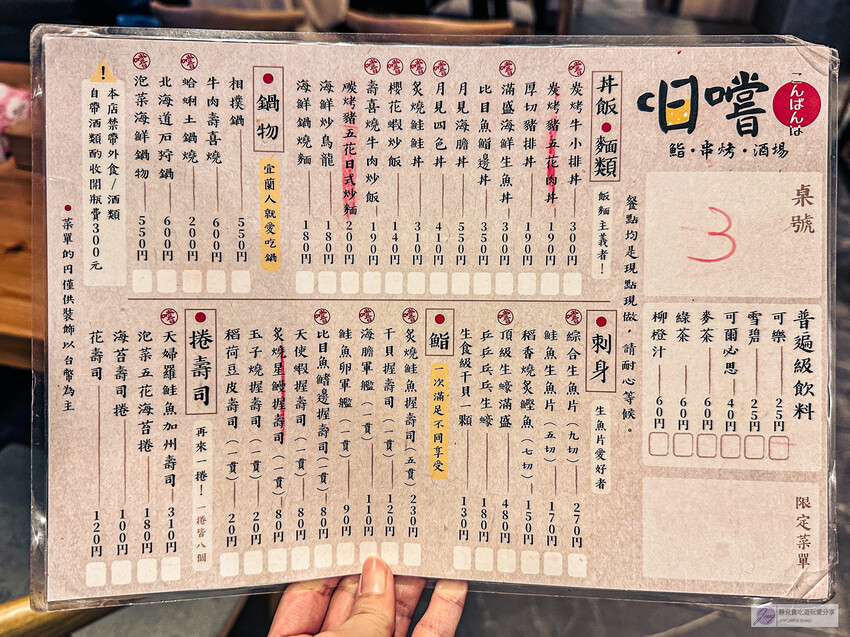 日嚐
こんばんは
鮨・串烤・酒場
桌號
3
餐點均是現點現做，請耐心等候。
普遍級飲料
可樂 25円
雪碧 25円
可爾必思 40円
麥茶 60円
綠茶 60円
柳橙汁 60円
限定菜單
丼飯●麵類
飯麵主義者！
嚐 炭烤牛小排丼 300円
炭烤豬五花肉丼 190円
厚切豬排丼 190円
嚐 滿盛海鮮生魚丼 300円
比目魚鰭邊丼 350円
月見海膽丼 550円
嚐 月見四色丼 410円
嚐 炙燒鮭鮭丼 310円
嚐 櫻花蝦炒飯 140円
嚐 壽喜燒牛肉炒飯 190円
炭烤豬五花日式炒麵 200円
海鮮炒烏龍 180円
海鮮鍋燒麵 180円
鍋物
宜蘭人就愛吃鍋
相撲鍋 550円
牛肉壽喜燒 600円
嚐 蛤蜊土鍋 200円
北海道石狩鍋 600円
嚐 泡菜海鮮鍋物 550円
本店禁帶外食/酒類
自帶酒類酌收開瓶費300元
●菜單的円僅供裝飾以台幣為主
刺身
生魚片愛好者
嚐 綜合生魚片（九切） 270円
鮭魚生魚片（五切） 170円
稻香燒炙鰹魚（七切） 150円
嚐 頂級生蠔滿盛 480円
乒乒乓乓生蠔 180円
生食級干貝一顆 130円
鮨
一次滿足不同享受
嚐 炙燒鮭魚握壽司（五貫） 230円
干貝握壽司（一貫） 120円
嚐 海膽軍艦（一貫） 110円
鮭魚卵軍艦（一貫） 90円
嚐 比目魚鰭邊握壽司（一貫） 80円
天使蝦握壽司（一貫） 80円
炙燒星鰻握壽司（一貫） 80円
玉子燒握壽司（一貫） 20円
稻荷豆皮壽司（一貫） 20円
捲壽司
再來一捲！一捲皆八個
嚐 天婦羅鮭魚加州壽司 310円
泡菜五花海苔捲 180円
海苔壽司捲 100円
花壽司 120円
靜兒貪吃遊玩愛分享